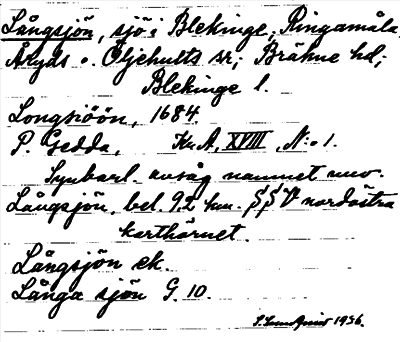 Långsjön, sjö i Blekinge, Ringamåla,
Åryds o. Öljehults sr; Bräkne hd;
Blekinge l.
Longsiöön, 1684.
P. Gedda, Kr. A, XVIII, N:o 1.
Synbarl. avsåg namnet nuv.
Långsjön, bel. 9,2 km. SSV nordöstra
karthörnet.
Långsjön ek.
Långa sjön G. 10.
1936.